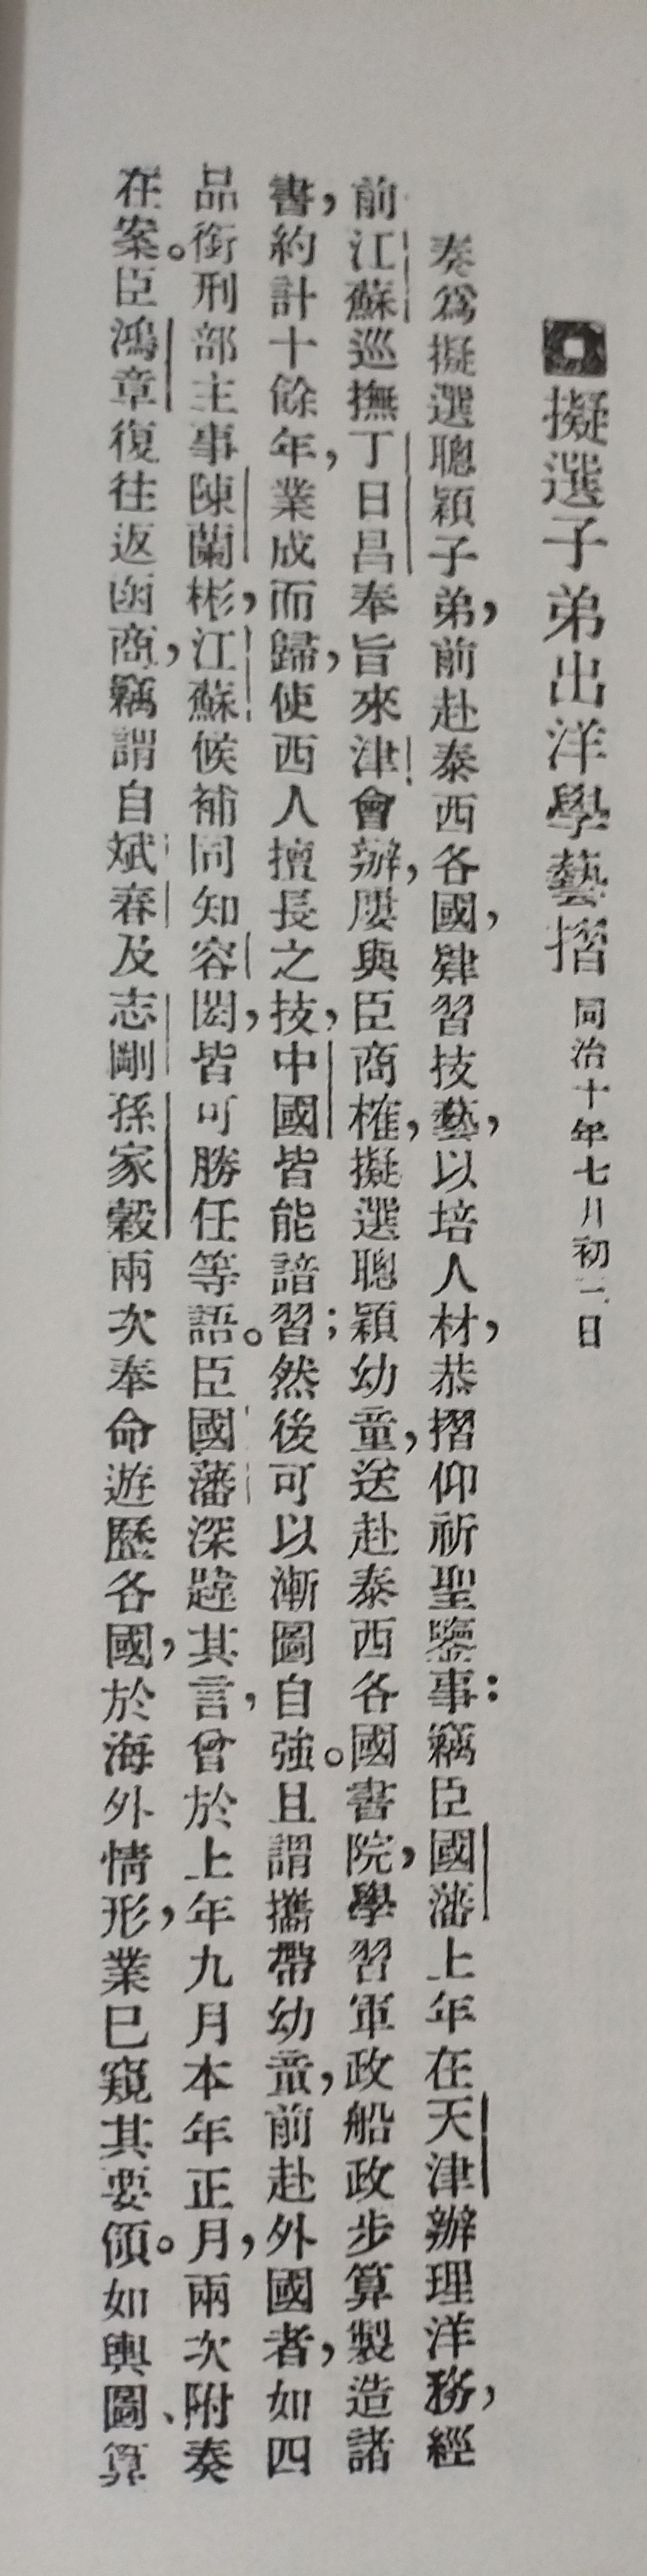 擬選子弟出洋學藝摺 同治十年七月初二日
奏爲擬選聰穎子弟，前赴泰西各國，肄習技藝，以培人材，恭摺仰祈聖鑒事：竊臣國藩上年在天津辦理洋務，經
前江蘇巡撫丁日昌奉旨來津會辦，屢與臣商榷，擬選聰穎幼童，送赴泰西各國書院，學習軍政船政步算製造諸
書，約計十餘年，業成而歸，使西人擅長之技，中國皆能諳習；然後可以漸圖自強。且謂攜帶幼童，前赴外國者，如四
品銜刑部主事陳蘭彬，江蘇候補同知容閎，皆可勝任等語。臣國藩深韙其言，曾於上年九月本年正月，兩次附奏
在案。臣鴻章復往返函商，竊謂自斌春及志剛孫家穀兩次奉命遊歷各國，於海外情形，業已窺其要領。如輿圖、算